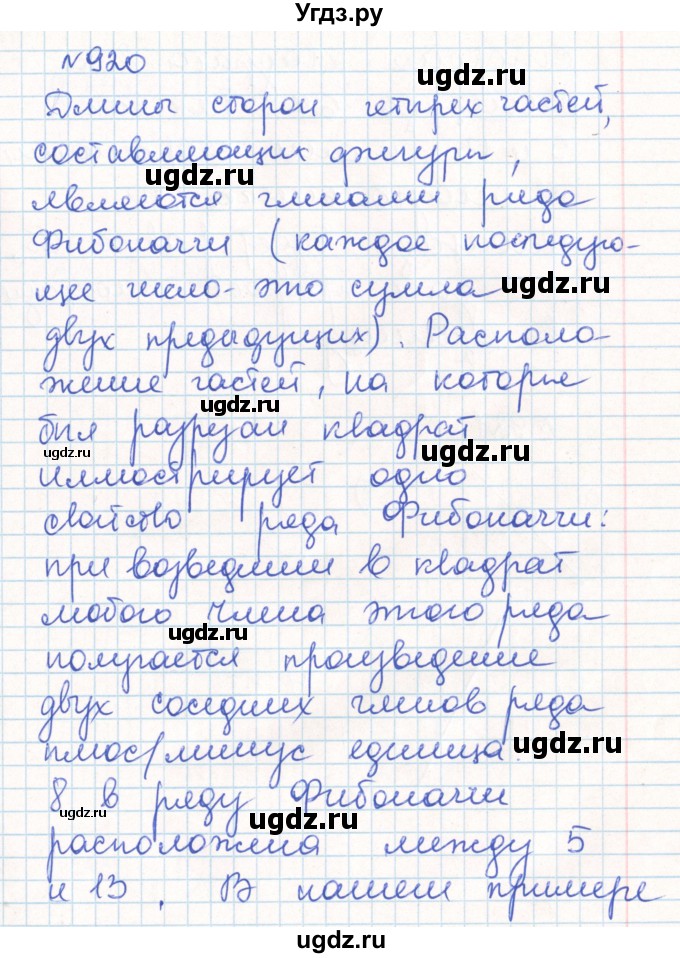 Угдз.ру
№920
ugdz.ru
Длины сторон четырех частей,
составляющих фигуры,
ugdz.ru
являются членами ряда
Фибоначчи (каждое последую-
ugdz.ru
щее число - это сумма
двух предыдущих). Располо-
ugdz.ru
жение частей, на которые
ugdz.ru
был разрезан квадрат
ugdz.ru ugdz.ru
иллюстрирует одно
свойство ряда Фибоначчи:
ugdz.ru
при возведении в квадрат
любого члена этого ряда
ugdz.ru
получается произведение
двух соседних членов ряда
плюс/минус единица.
ugdz.ru
8 в ряду Фибоначчи
ugdz.ru ugdz.ru
расположена между 5
и 13. В нашем примере
ugdz.ru